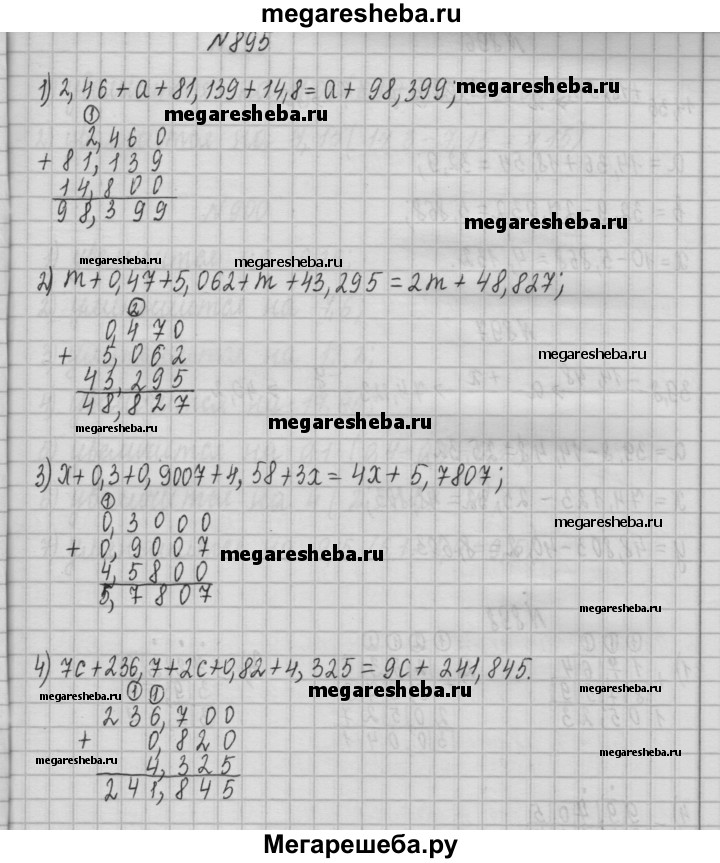 megaresheba.ru
№895
1) 2,46 + a + 81,139 + 14,8 = a + 98,399;
megaresheba.ru
①
2,460
+ 81,139
14,800
98,399
megaresheba.ru
megaresheba.ru
megaresheba.ru
megaresheba.ru
2) m + 0,47 + 5,062 + m + 43,295 = 2m + 48,827;
②
0,470
+ 5,062
43,295
48,827
megaresheba.ru
megaresheba.ru
megaresheba.ru
3) x + 0,3 + 0,9007 + 4,58 + 3x = 4x + 5,7807;
①
0,3000
+ 0,9007
4,5800
5,7807
megaresheba.ru
megaresheba.ru
megaresheba.ru
4) 7c + 236,7 + 2c + 0,82 + 4,325 = 9c + 241,845.
megaresheba.ru
megaresheba.ru
① ①
236,700
+ 0,820
4,325
241,845
megaresheba.ru
megaresheba.ru
megaresheba.ru
Мегарешеба.ру